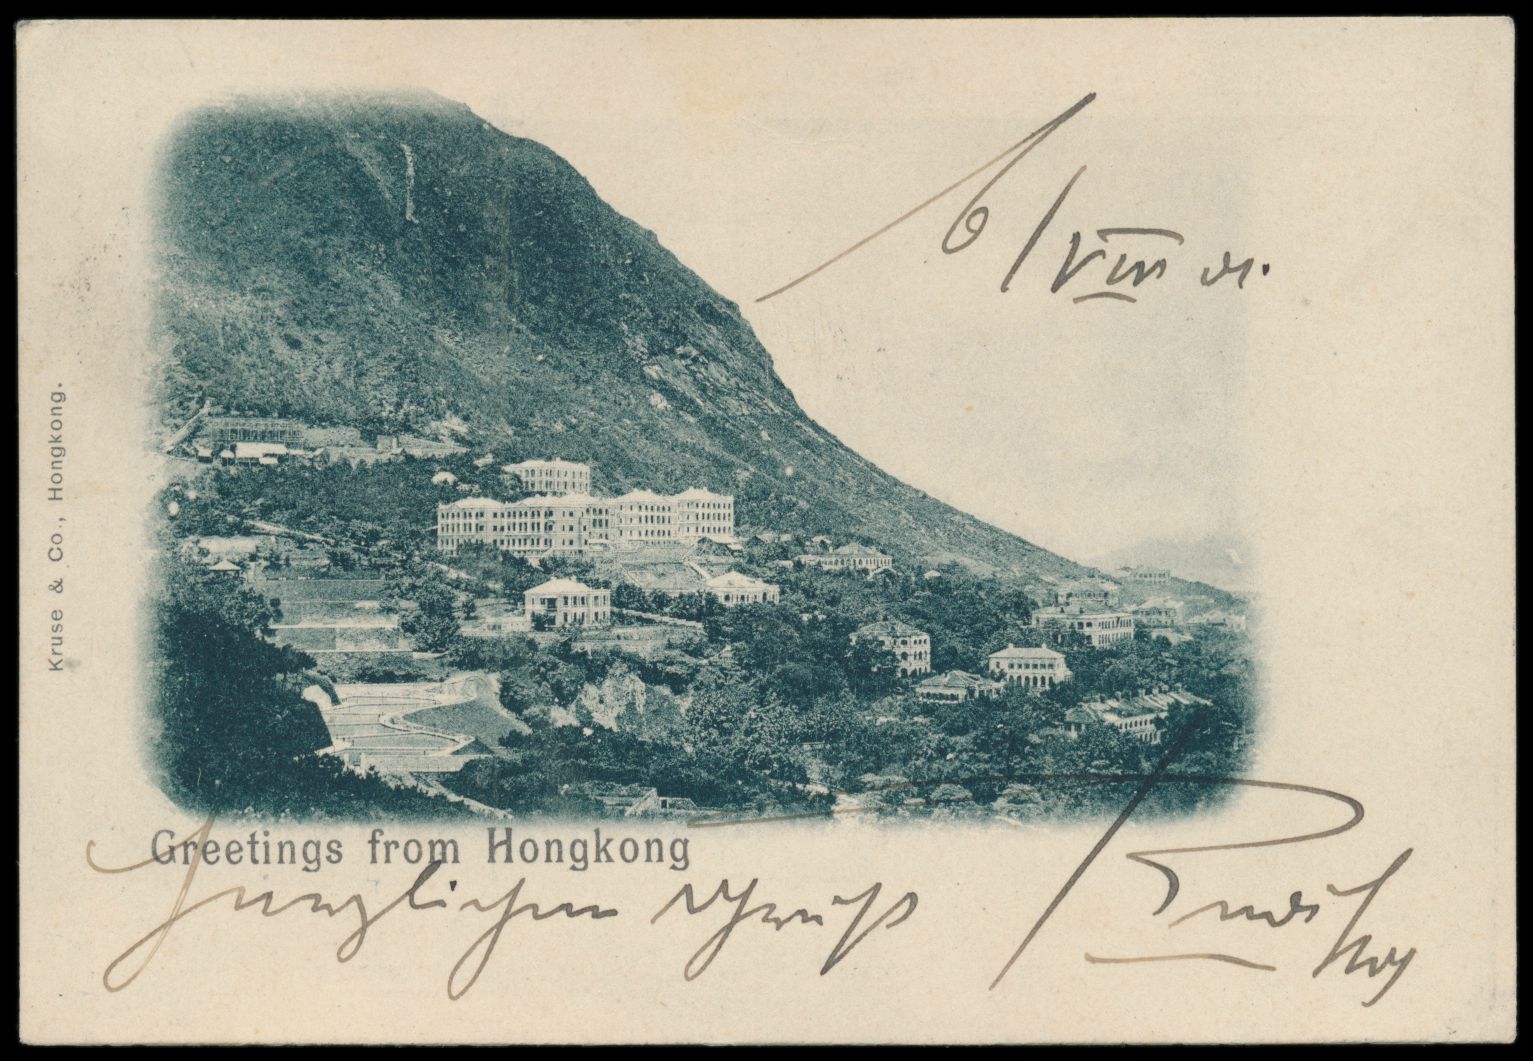 6/VIII 01.
Kruse & Co., Hongkong.
Greetings from Hongkong
Herzlichen Gruß